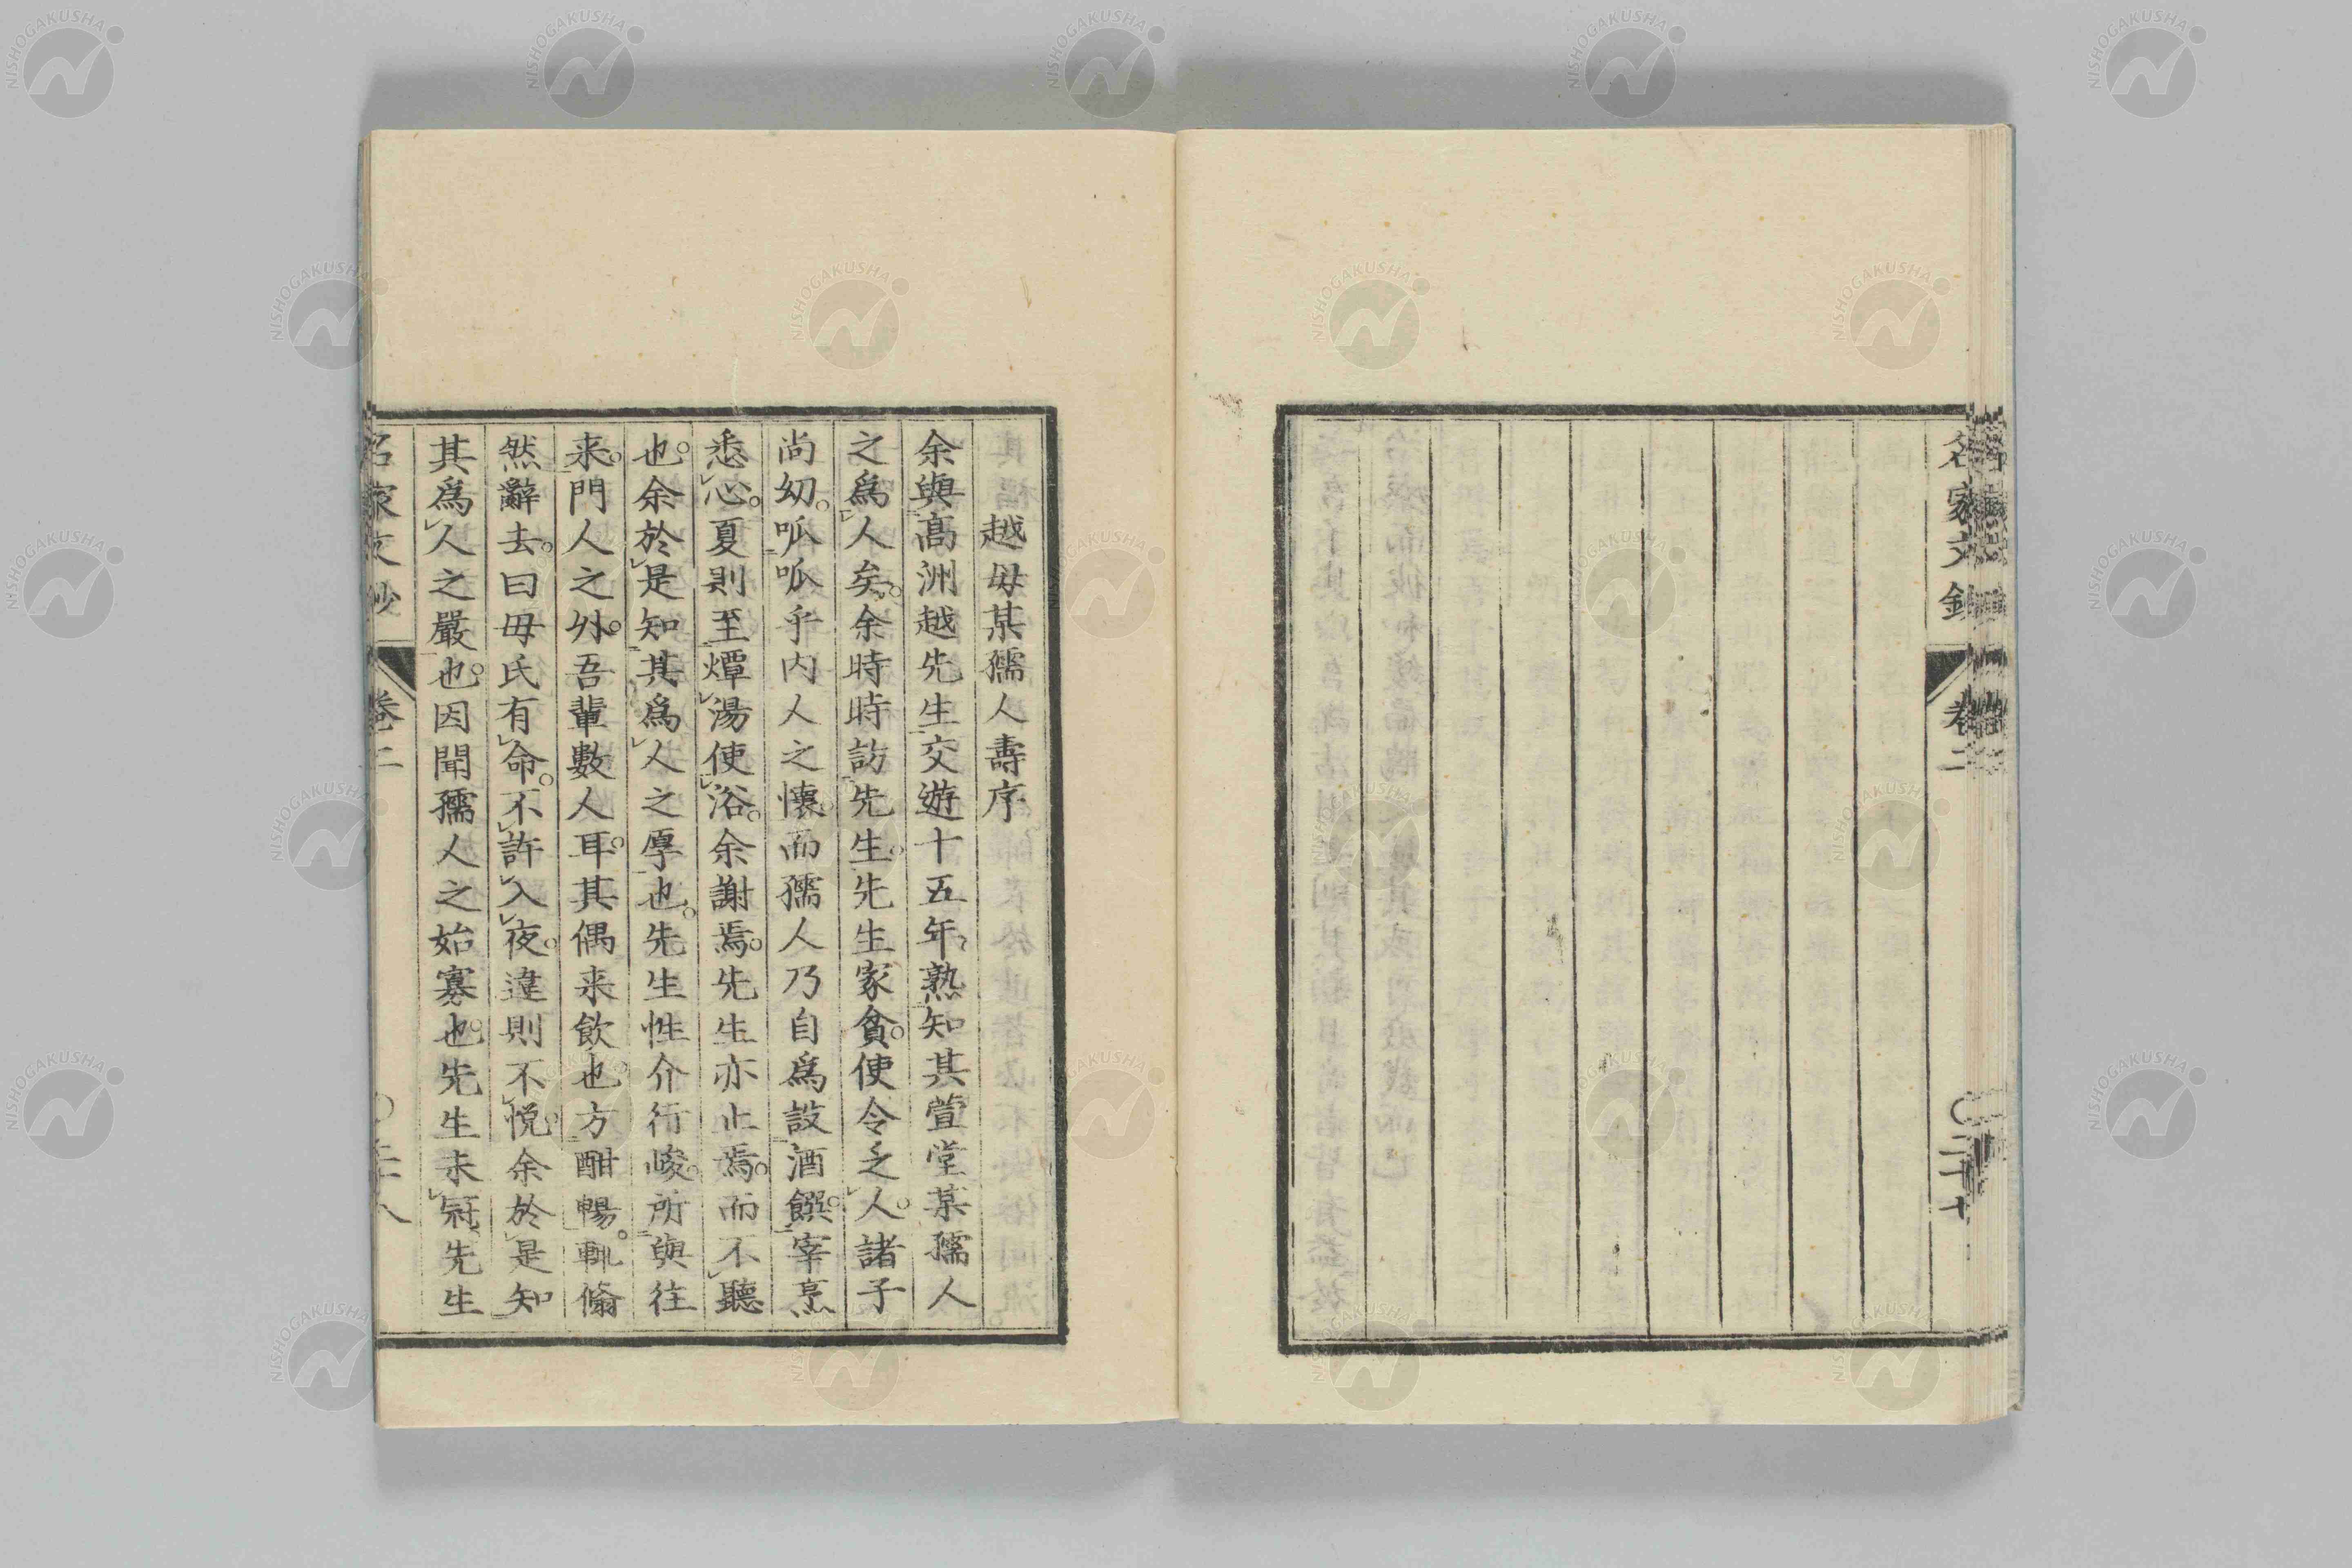 名家文鈔
卷二
〇二十七
越母某孺人壽序
余與髙洲越先生交遊十五年熟知其萱堂某孺人
之爲人矣余時時訪先生先生家貧使令乏人諸子
尚幼呱呱乎内人之懷而孺人乃自爲設酒饌宰烹
悉心夏則至燂湯使浴余謝焉先生亦止焉而不聽
也余於是知其爲人之厚也先生性介行峻所與往
来門人之外吾輩數人耳其偶来飲也方酣暢輒翛
然辭去曰母氏有命不許入夜違則不悦余於是知
其爲人之嚴也因聞孺人之始寡也先生未冠先生
名家文鈔
卷二
NISHOGAKUSHA